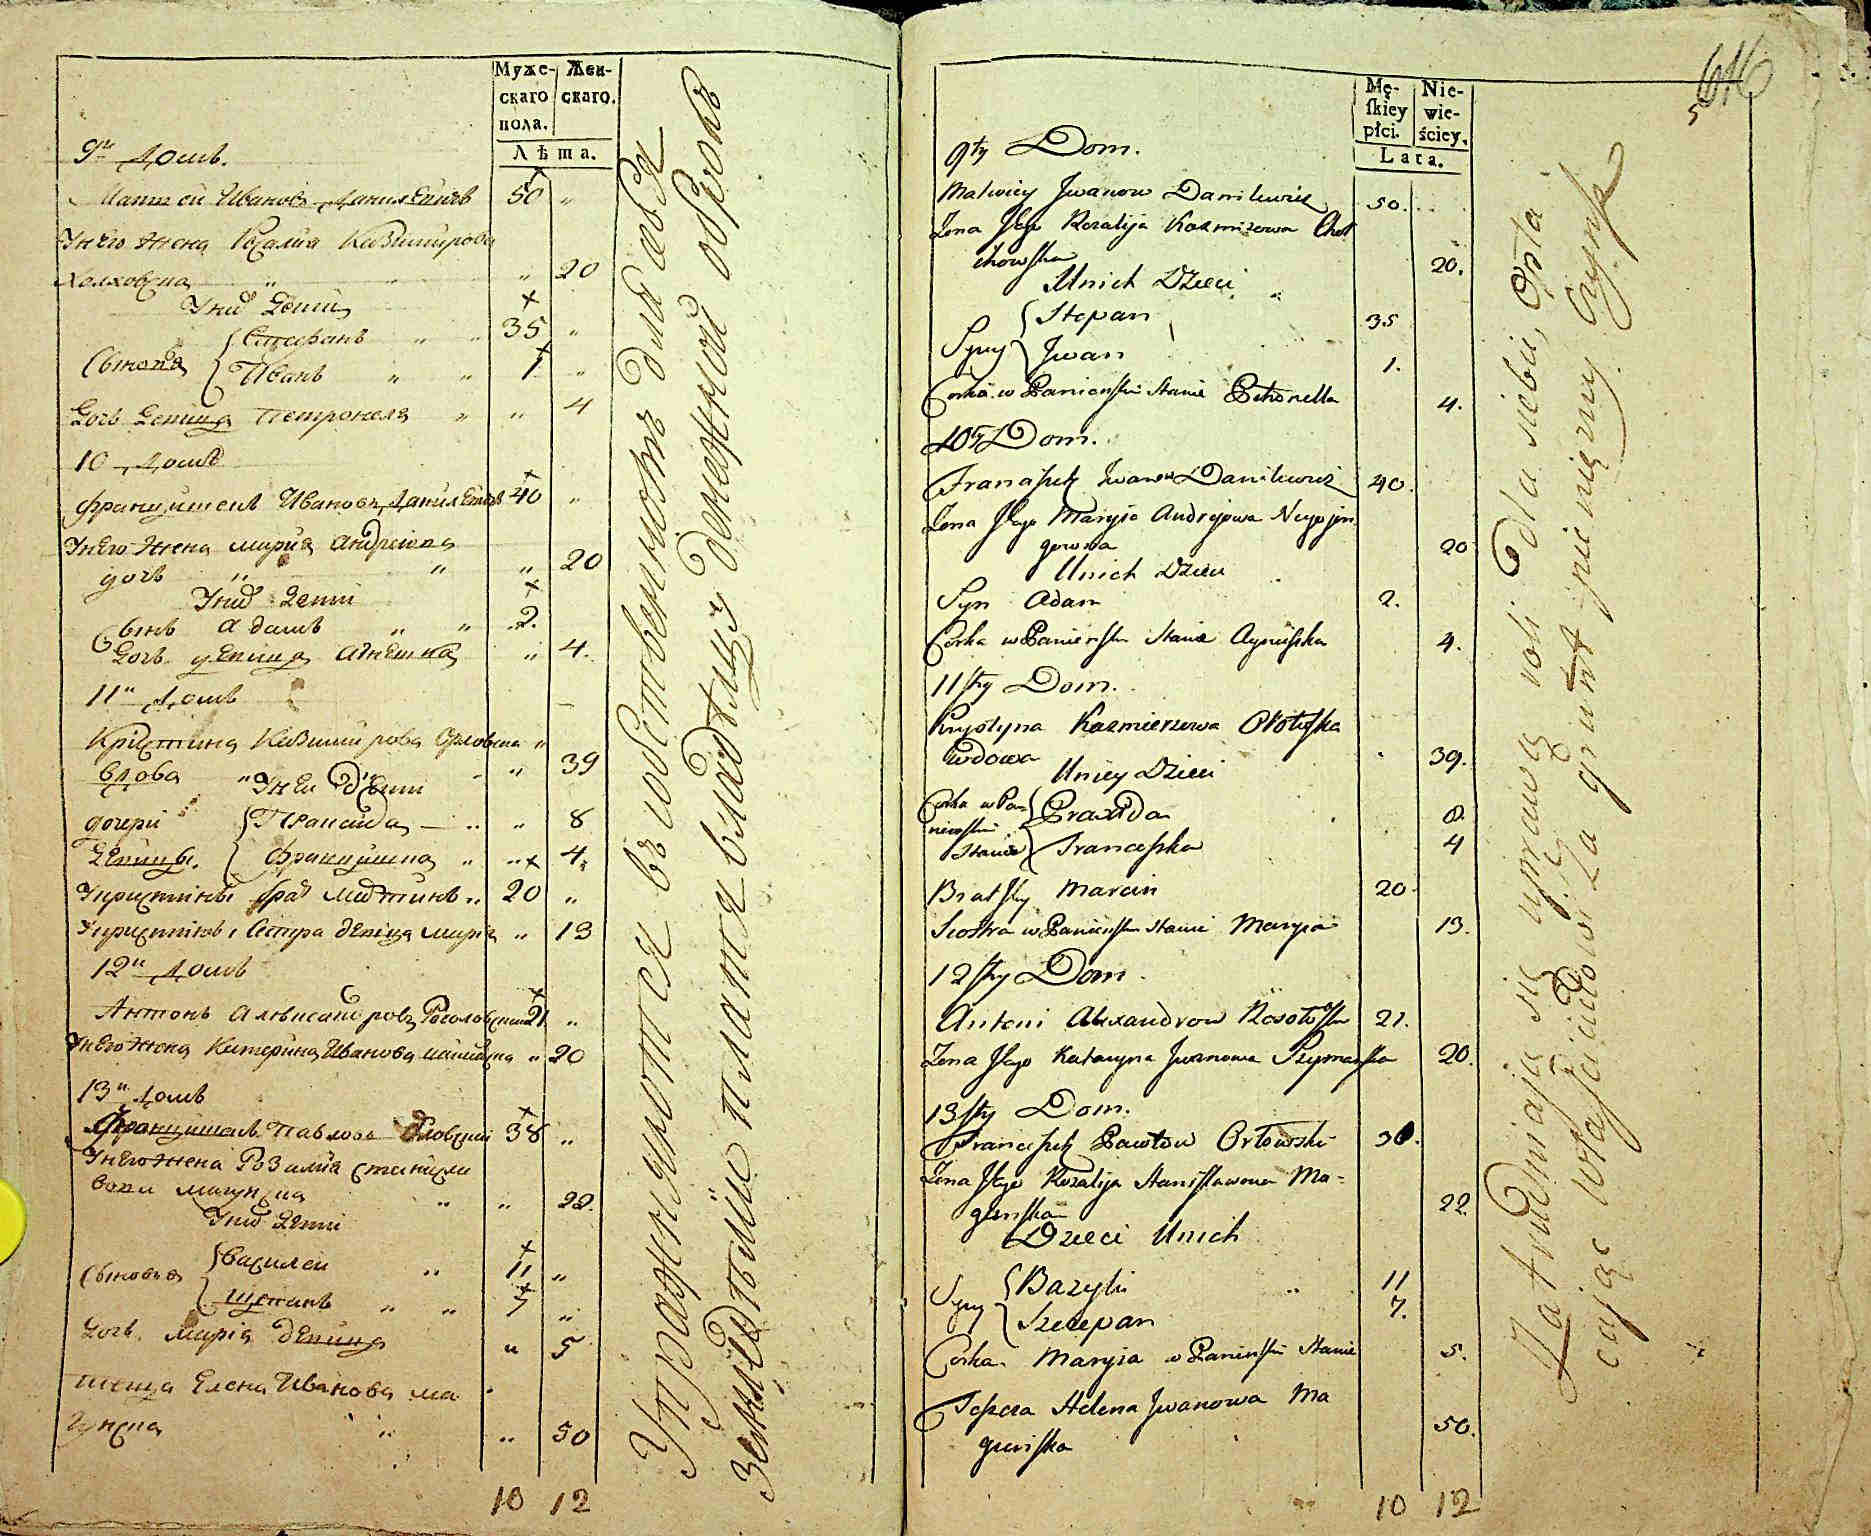 Муже- Жен-
скаго скаго.
пола.
Лѣта.
9й Домъ.
Матвей Ивановъ Данилевичъ 50 "
У него жена Розалия Казимирова
Холховска " " 20
У нихъ дети
Сыновья { Стефанъ " " 35 "
Иванъ " " 1 "
Дочь девица Петронеля " " 4
10 Домъ
Францишекъ Ивановъ Данилевичъ 40 "
У него жена Мария Андреева
" " " 20
У нихъ дети
Сынъ Адамъ " " 2.
Дочь девица Агнешка " 4.
11й Домъ
Кристина Казимирова Орловска "
вдова " " 39
У неи дети
дочери { Праксида " " 8
девицы. Францишка " " 4.
У Кристины братъ Мартинъ " 20 "
У Кристины сестра девица Мария " 13
12й Домъ
Антонъ Александровъ Росоловский 21 "
У него жена Катерина Иванова " 20
13й Домъ
Францишекъ Павловъ Орловский 38 "
У него жена Розалия Станисла
вова Магунска " " 22.
У нихъ дети
Сыновья { Василеи " 11 "
Щепанъ " " 7 "
Дочь Мария девица " 5
теща Елена Иванова Ма
гунска " " 50
10 12
Упражняются въ хлебопашестве для себя
земледельные платя владельцу денежной оброкъ
616
5
Mę- Nie-
skiey wie-
płci. ściey.
Lata.
9ty Dom.
Matwiey Iwanow Danilewicz 50.
Żona Jego Rozalija Kazmirowa Choł
chowska 20.
U nich Dzieci
Syny { Stepan 35
Iwan 1.
Corka w Panieńskim Stanie Petronella 4.
10ty Dom.
Franciszek Iwanow Danilewicz 40.
Żona Jego Maryia Andrzejowa
20
U nich Dzieci
Syn Adam 2.
Corka w Panieńskim Stanie Agnieszka 4.
11sty Dom.
Krystyna Kazmierzowa Orłowska
wdowa 39.
U niey Dzieci
Corka w Pa- { Praxida 8.
nieńskim
Stanie Franciszka 4
Brat Jey Marcin 20
Siostra w Panieńskim Stanie Maryia 13.
12sty Dom.
Antoni Alexandrow Rosołowski 21.
Żona Jego Katarzyna Iwanowa Szymańska 20.
13sty Dom.
Franciszek Pawłow Orłowski 38.
Żona Jego Rozalija Stanisławowa Ma-
guńska 22.
Dzieci U nich
Syny { Bazyli " 11
Szczepan 7.
Corka Maryia w Panieńskim Stanie 5.
Teszcza Helena Iwanowa Ma
guńska 50.
10 12
Zatrudniaja się uprawą roli dla siebie, Opła
caiąc Właścicielowi za grunt pieniężny Czynsz